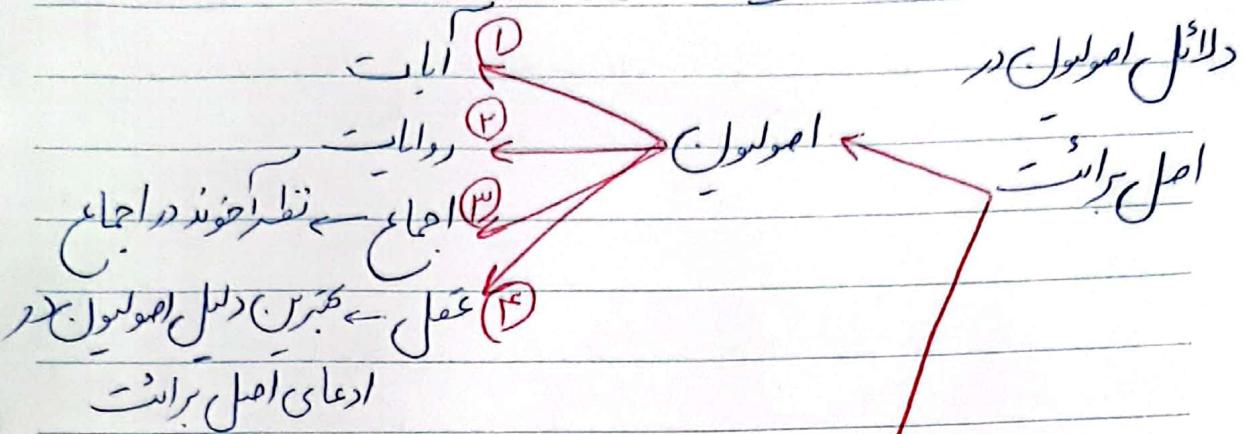 دلائل اصولیون در
اصل برائت
اصولیون
۱ آیات
۲ روایات
۳ اجماع ← نظر آخوند در اجماع
۴ عقل ← بهترین دلیل اصولیون در
ادعای اصل برائت